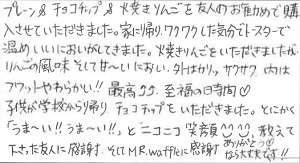 プレーン& チョコチップ & 焼きりんごを友人のお勧めで購
入させていただきました。家に帰り、ワクワクした気分でトースターで
温めいいにおいがしてきました。焼きりんごをいただきましたが
りんごの風味 そして甘〜いにおい、外はカリッ サクサク 内は
フワットやわらかい!! 最高♪♪ 至福の時間♡
子供が学校から帰り チョコチップをいただきました。とにかく
「うま〜い!! うま〜い!!」と ニコニコ 笑顔 教えて
下さった友人に感謝! そして MR.waffleに感謝 ありがとう♡